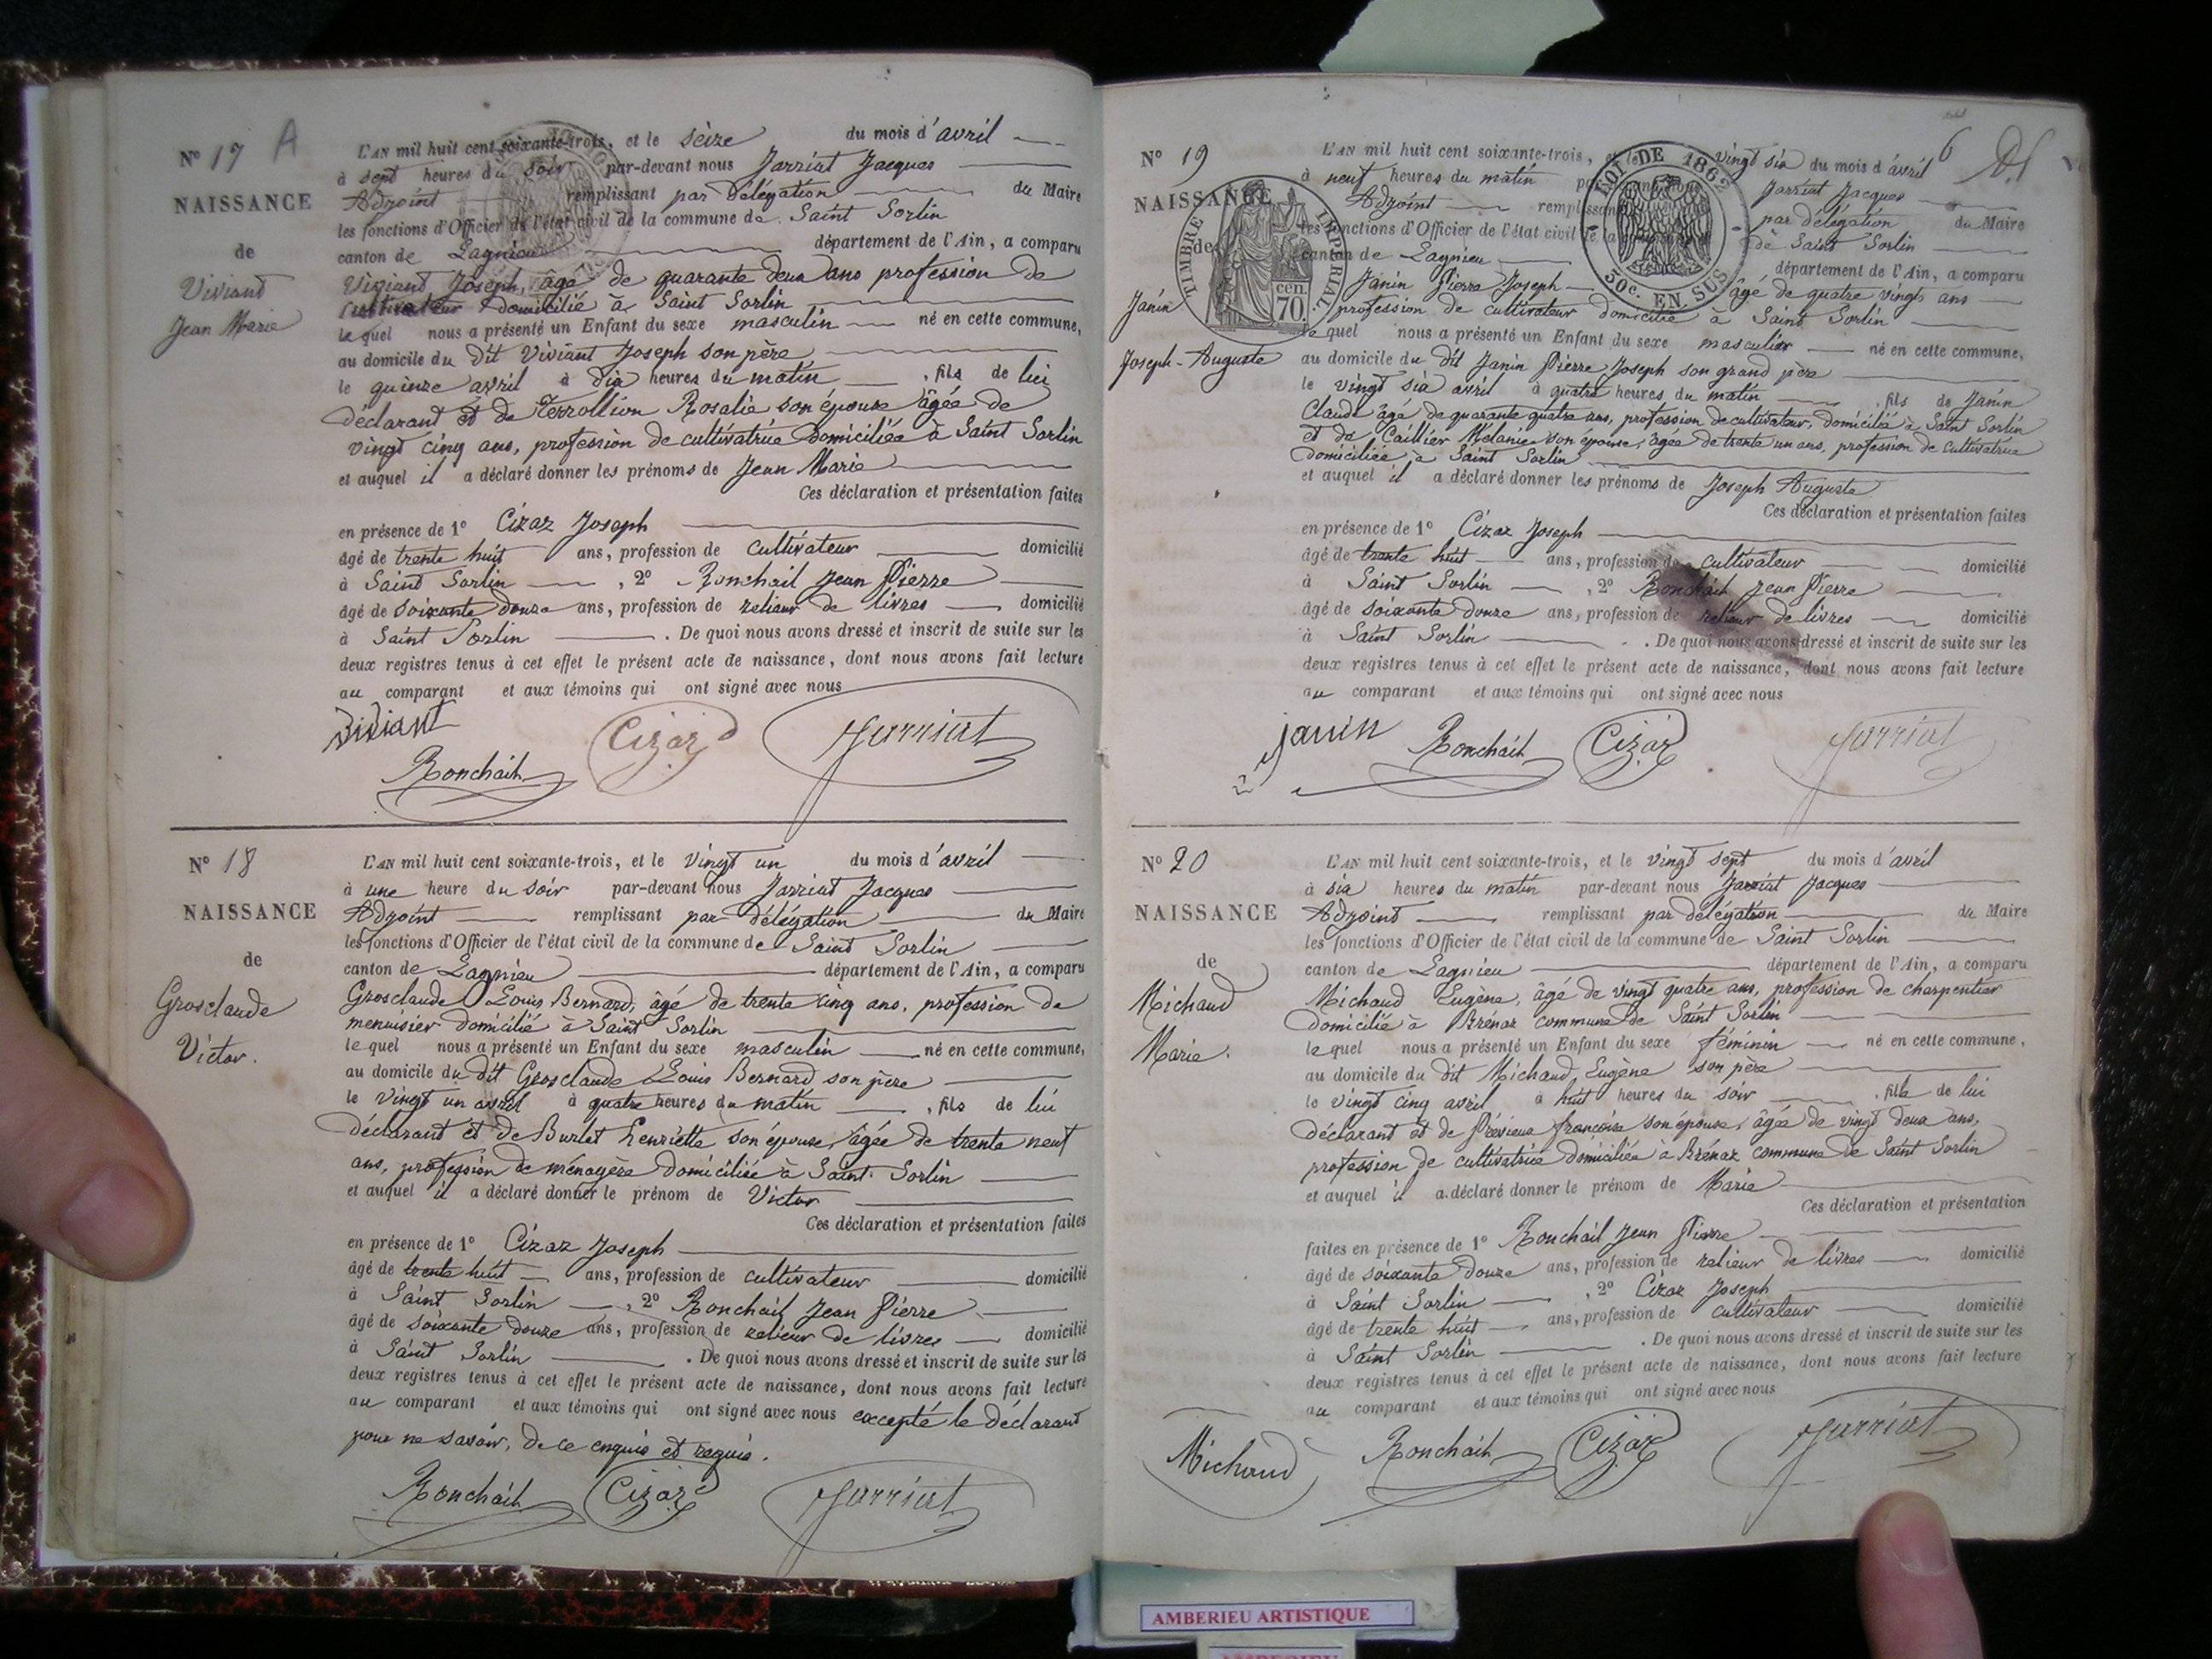 Nº 17 A
NAISSANCE
de
Viviant
Jean Marie
L'AN mil huit cent soixante-trois, et le seize du mois d'avril
à sept heures du soir par-devant nous Jarriat Jacques
Adjoint remplissant par délégation du Maire
les fonctions d'Officier de l'état civil de la commune de Saint Sorlin
canton de Lagnieu département de l'Ain, a comparu
Viviant Joseph, âgé de quarante deux ans profession de
cultivateur domicilié à Saint Sorlin
lequel nous a présenté un Enfant du sexe masculin né en cette commune,
au domicile du dit Viviant Joseph son père
le quinze avril à dix heures du matin, fils de lui
déclarant et de Terrollion Rosalie son épouse âgée de
vingt cinq ans, profession de cultivatrice domiciliée à Saint Sorlin
et auquel il a déclaré donner les prénoms de Jean Marie
Ces déclaration et présentation faites
en présence de 1º Cizaz Joseph
âgé de trente huit ans, profession de cultivateur domicilié
à Saint Sorlin, 2º Ronchail Jean Pierre
âgé de soixante douze ans, profession de relieur de livres domicilié
à Saint Sorlin. De quoi nous avons dressé et inscrit de suite sur les
deux registres tenus à cet effet le présent acte de naissance, dont nous avons fait lecture
au comparant et aux témoins qui ont signé avec nous
Viviant Cizaz Jarriat
Ronchail
Nº 18
NAISSANCE
de
Grosclaude
Victor.
L'AN mil huit cent soixante-trois, et le vingt un du mois d'avril
à une heure du soir par-devant nous Jarriat Jacques
Adjoint remplissant par délégation du Maire
les fonctions d'Officier de l'état civil de la commune de Saint Sorlin
canton de Lagnieu département de l'Ain, a comparu
Grosclaude Louis Bernard, âgé de trente cinq ans, profession de
menuisier domicilié à Saint Sorlin
lequel nous a présenté un Enfant du sexe masculin né en cette commune,
au domicile du dit Grosclaude Louis Bernard son père
le vingt un avril à quatre heures du matin, fils de lui
déclarant et de Burlet Henriette son épouse, âgée de trente neuf
ans, profession de ménagère domiciliée à Saint Sorlin
et auquel il a déclaré donner le prénom de Victor
Ces déclaration et présentation faites
en présence de 1º Cizaz Joseph
âgé de trente huit ans, profession de cultivateur domicilié
à Saint Sorlin, 2º Ronchail Jean Pierre
âgé de soixante douze ans, profession de relieur de livres domicilié
à Saint Sorlin. De quoi nous avons dressé et inscrit de suite sur les
deux registres tenus à cet effet le présent acte de naissance, dont nous avons fait lecture
au comparant et aux témoins qui ont signé avec nous excepté le déclarant
pour ne savoir, de ce enquis et requis.
Ronchail Cizaz Jarriat
6
Nº 19
NAISSANCE
de
Janin
Joseph-Auguste
TIMBRE IMPERIAL
70 cen.
LOI DE 1862
50c. EN SUS
L'AN mil huit cent soixante-trois, et le vingt six du mois d'avril
à neuf heures du matin par-devant nous Jarriat Jacques
Adjoint remplissant par délégation du Maire
les fonctions d'Officier de l'état civil de la commune de Saint Sorlin
canton de Lagnieu département de l'Ain, a comparu
Janin Pierre Joseph âgé de quatre vingts ans
profession de cultivateur domicilié à Saint Sorlin
lequel nous a présenté un Enfant du sexe masculin né en cette commune,
au domicile du dit Janin Pierre Joseph son grand père
le vingt six avril à quatre heures du matin, fils de Janin
Claude âgé de quarante quatre ans, profession de cultivateur, domicilié à Saint Sorlin
et de Caillier Mélanie son épouse, âgée de trente un ans, profession de cultivatrice
domiciliée à Saint Sorlin
et auquel il a déclaré donner les prénoms de Joseph Auguste
Ces déclaration et présentation faites
en présence de 1º Cizaz Joseph
âgé de trente huit ans, profession de cultivateur domicilié
à Saint Sorlin, 2º Ronchail Jean Pierre
âgé de soixante douze ans, profession de relieur de livres domicilié
à Saint Sorlin. De quoi nous avons dressé et inscrit de suite sur les
deux registres tenus à cet effet le présent acte de naissance, dont nous avons fait lecture
au comparant et aux témoins qui ont signé avec nous
janin Ronchail Cizaz Jarriat
Nº 20
NAISSANCE
de
Michaud
Marie.
L'AN mil huit cent soixante-trois, et le vingt sept du mois d'avril
à six heures du matin par-devant nous Jarriat Jacques
Adjoint remplissant par délégation du Maire
les fonctions d'Officier de l'état civil de la commune de Saint Sorlin
canton de Lagnieu département de l'Ain, a comparu
Michaud Eugène, âgé de vingt quatre ans, profession de charpentier
domicilié à Brénaz commune de Saint Sorlin
lequel nous a présenté un Enfant du sexe féminin né en cette commune,
au domicile du dit Michaud Eugène son père
le vingt cinq avril à huit heures du soir, fille de lui
déclarant et de Prévieux françoise son épouse, âgée de vingt deux ans,
profession de cultivatrice domiciliée à Brénaz commune de Saint Sorlin
et auquel il a déclaré donner le prénom de Marie
Ces déclaration et présentation
faites en présence de 1º Ronchail Jean Pierre
âgé de soixante douze ans, profession de relieur de livres domicilié
à Saint Sorlin, 2º Cizaz Joseph
âgé de trente huit ans, profession de cultivateur domicilié
à Saint Sorlin. De quoi nous avons dressé et inscrit de suite sur les
deux registres tenus à cet effet le présent acte de naissance, dont nous avons fait lecture
au comparant et aux témoins qui ont signé avec nous
Michaud Ronchail Cizaz Jarriat
AMBERIEU ARTISTIQUE